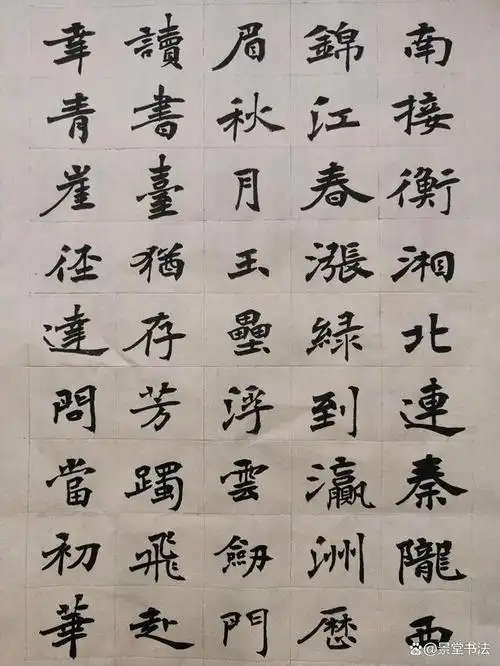 南接衡湘北連秦隴西
錦江春漲緑到瀛洲歷
眉秋月玉壘浮雲劒門
讀書臺猶存芳躅飛赴
幸青崖徑達問當初華
景堂书法